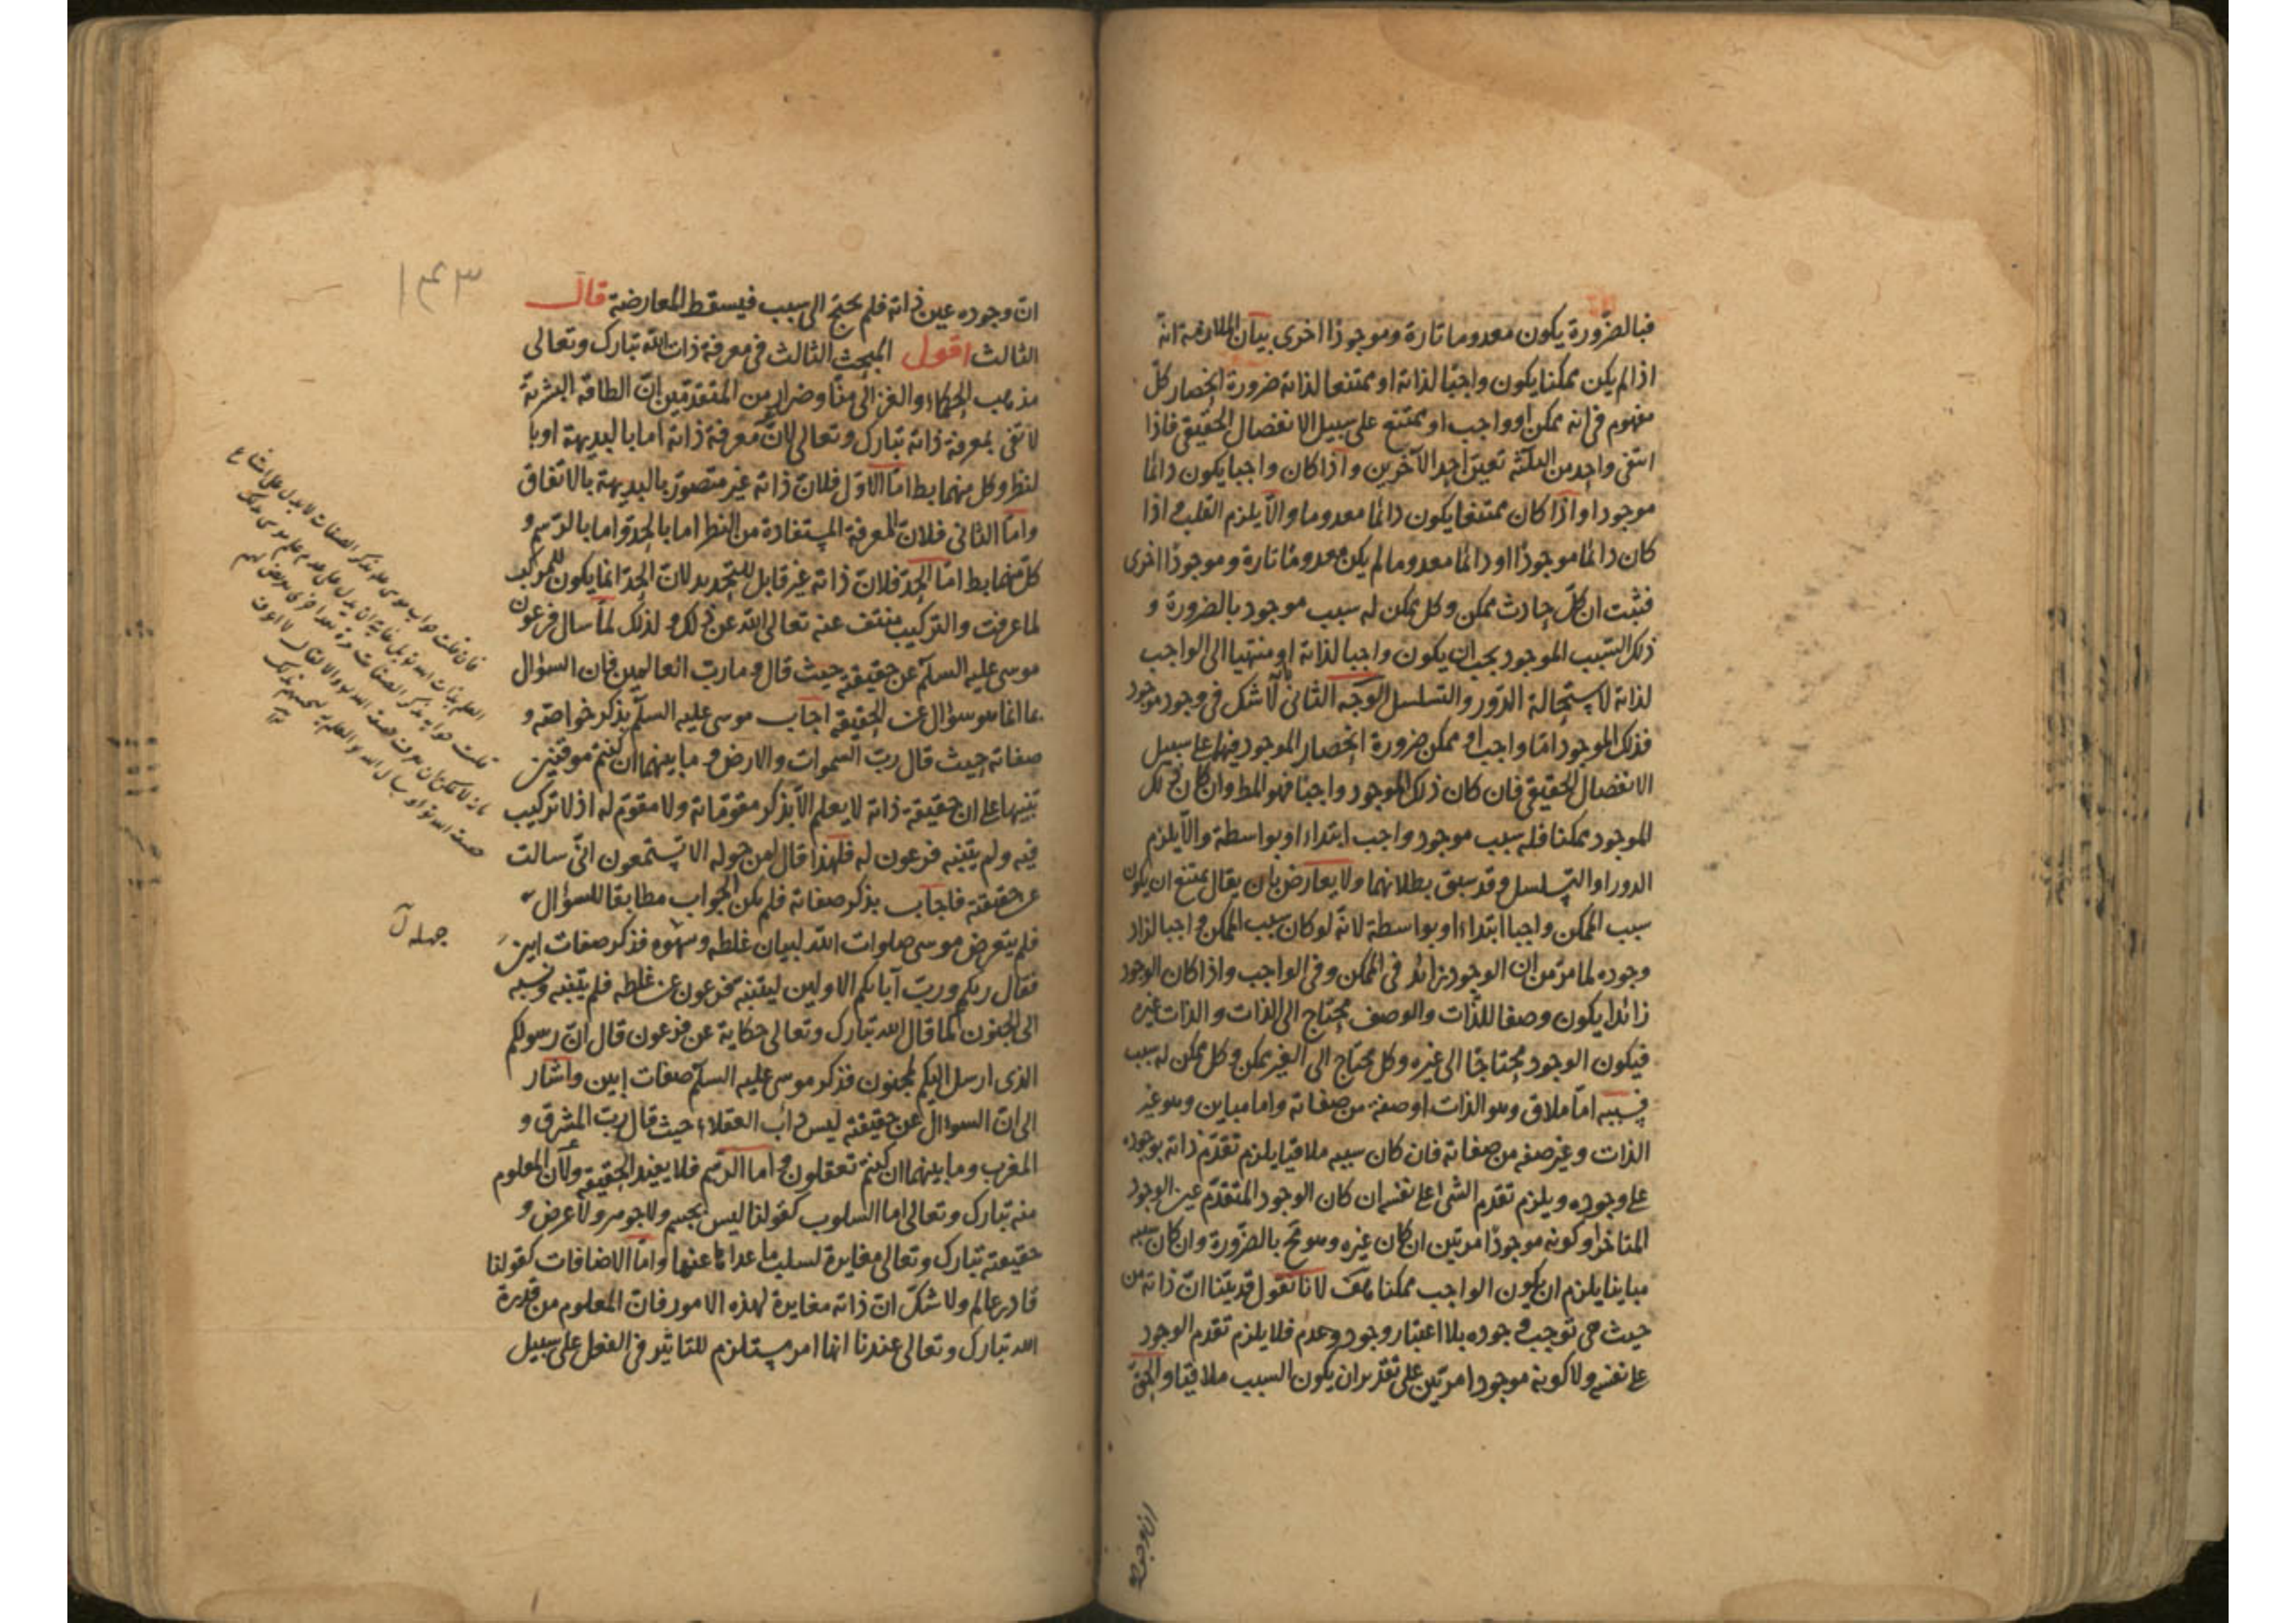 فبالضرورة يكون معدوما تارة وموجودا اخرى بيان الملازمة انه
اذا لم يكن ممكنا يكون واجبا لذاته او ممتنعا لذاته ضرورة انحصار كل
مفهوم فى انه ممكن او واجب او ممتنع على سبيل الانفصال الحقيقى فاذا
انتفى واحد من الثلثة تعين احد الآخرين واذا كان واجبا يكون دائما
موجودا واذا كان ممتنعا يكون دائما معدوما والا يلزم القلب اذا
كان دائما موجودا او دائما معدوما لم يكن معدوما تارة وموجودا اخرى
فثبت ان كل حادث ممكن وكل ممكن له سبب موجود بالضرورة و
ذلك السبب الموجود يجب ان يكون واجبا لذاته او منتهيا الى الواجب
لذاته لاستحالة الدور والتسلسل الوجه الثانى لا شك فى وجود موجود
فذلك الموجود اما واجب او ممكن ضرورة انحصار الموجود فيهما على سبيل
الانفصال الحقيقى فان كان ذلك الموجود واجبا فهو المط وان كان ذلك
الموجود ممكنا فله سبب موجود واجب ابتداء او بواسطة والا يلزم
الدور او التسلسل وقد سبق بطلانهما ولا يعارض بان يقال يمتنع ان يكون
سبب الممكن واجبا ابتداء او بواسطة لانه لو كان سبب الممكن واجبا لزاد
وجوده لما مر من ان الوجود زائد فى الممكن وفى الواجب واذا كان الوجود
زائدا يكون وصفا للذات والوصف محتاج الى الذات والذات غيره
فيكون الوجود محتاجا الى غيره وكل محتاج الى الغير ممكن وكل ممكن له سبب
فسببه اما ملاق وهو الذات او صفة من صفاته واما مباين وهو غير
الذات وغير صفه من صفاته فان كان سببه ملاقيا يلزم تقدم ذاته بوجوده
على وجوده ويلزم تقدم الشئ على نفسه ان كان الوجود المتقدم عين الوجود
المتاخر او كونه موجودا مرتين ان كان غيره وهو مح بالضرورة وان كان سببه
مباينا يلزم ان يكون الواجب ممكنا هف لانا نقول قد بينا ان ذاته من
حيث هى توجب وجوده بلا اعتبار وجود وعدم فلا يلزم تقدم الوجود
على نفسه ولا كونه موجودا مرتين على تقدير ان يكون السبب ملاقيا والحق
ان وجوده
ان وجوده عين ذاته فلم يحتج الى سبب فيسقط المعارضة قال
الثالث اقول المبحث الثالث فى معرفة ذات الله تبارك وتعالى
مذهب الحكماء والغزالى منا وضرار من المتقدمين ان الطاقة البشرية
لا تفى بمعرفة ذاته تبارك وتعالى لان معرفة ذاته اما بالبديهة او با
لنظر وكل منهما بط اما الاول فلان ذاته غير متصور بالبديهة بالاتفاق
واما الثانى فلان المعرفة المستفادة من النظر اما بالحد واما بالرسم و
كل منهما بط اما الحد فلان ذاته غير قابل للتحديد لان الحد انما يكون للمركب
لما عرفت والتركيب منتف عنه تعالى الله عن ذلك ولذلك لما سال فرعون
موسى عليه السلم عن حقيقته حيث قال وما رب العالمين فان السؤال
بما انما هو سؤال عن الحقيقة اجاب موسى عليه السلم بذكر خواصه و
صفاته حيث قال رب السموات والارض وما بينهما ان كنتم موقنين
تنبيها على ان حقيقة ذاته لا يعلم الا بذكر مقوماته ولا مقوم له اذ لا تركيب
فيه ولم يتنبه فرعون له فلهذا قال لمن حوله الا تستمعون انى سالت
عن حقيقته فاجاب بذكر صفاته فلم يكن الجواب مطابقا للسؤال
فلم يتعرض موسى صلوات الله لبيان غلطه وسهوه فذكر صفات ابين
فقال ربكم ورب آبائكم الاولين ليتنبه فرعون عن غلطه فلم يتنبه ونسبه
الى الجنون كما قال الله تبارك وتعالى حكاية عن فرعون قال ان رسولكم
الذى ارسل اليكم لمجنون فذكر موسى عليه السلم صفات ابين واشار
الى ان السوال عن حقيقته ليس داب العقلاء حيث قال رب المشرق و
المغرب وما بينهما ان كنتم تعقلون واما الرسم فلا يفيد الحقيقة ولان المعلوم
منه تبارك وتعالى اما السلوب كقولنا ليس بجسم ولا جوهر ولا عرض و
حقيقته تبارك وتعالى مغايرة لسلب ما عداها عنها واما الاضافات كقولنا
قادر عالم ولا شك ان ذاته مغايرة لهذه الامور فان المعلوم من قدرة
الله تبارك وتعالى عندنا انها امر مستلزم للتاثير فى الفعل على سبيل
١٤٣
فان قلت جواب موسى علم بذكر الصفات لا يدل على امتناع
جهله